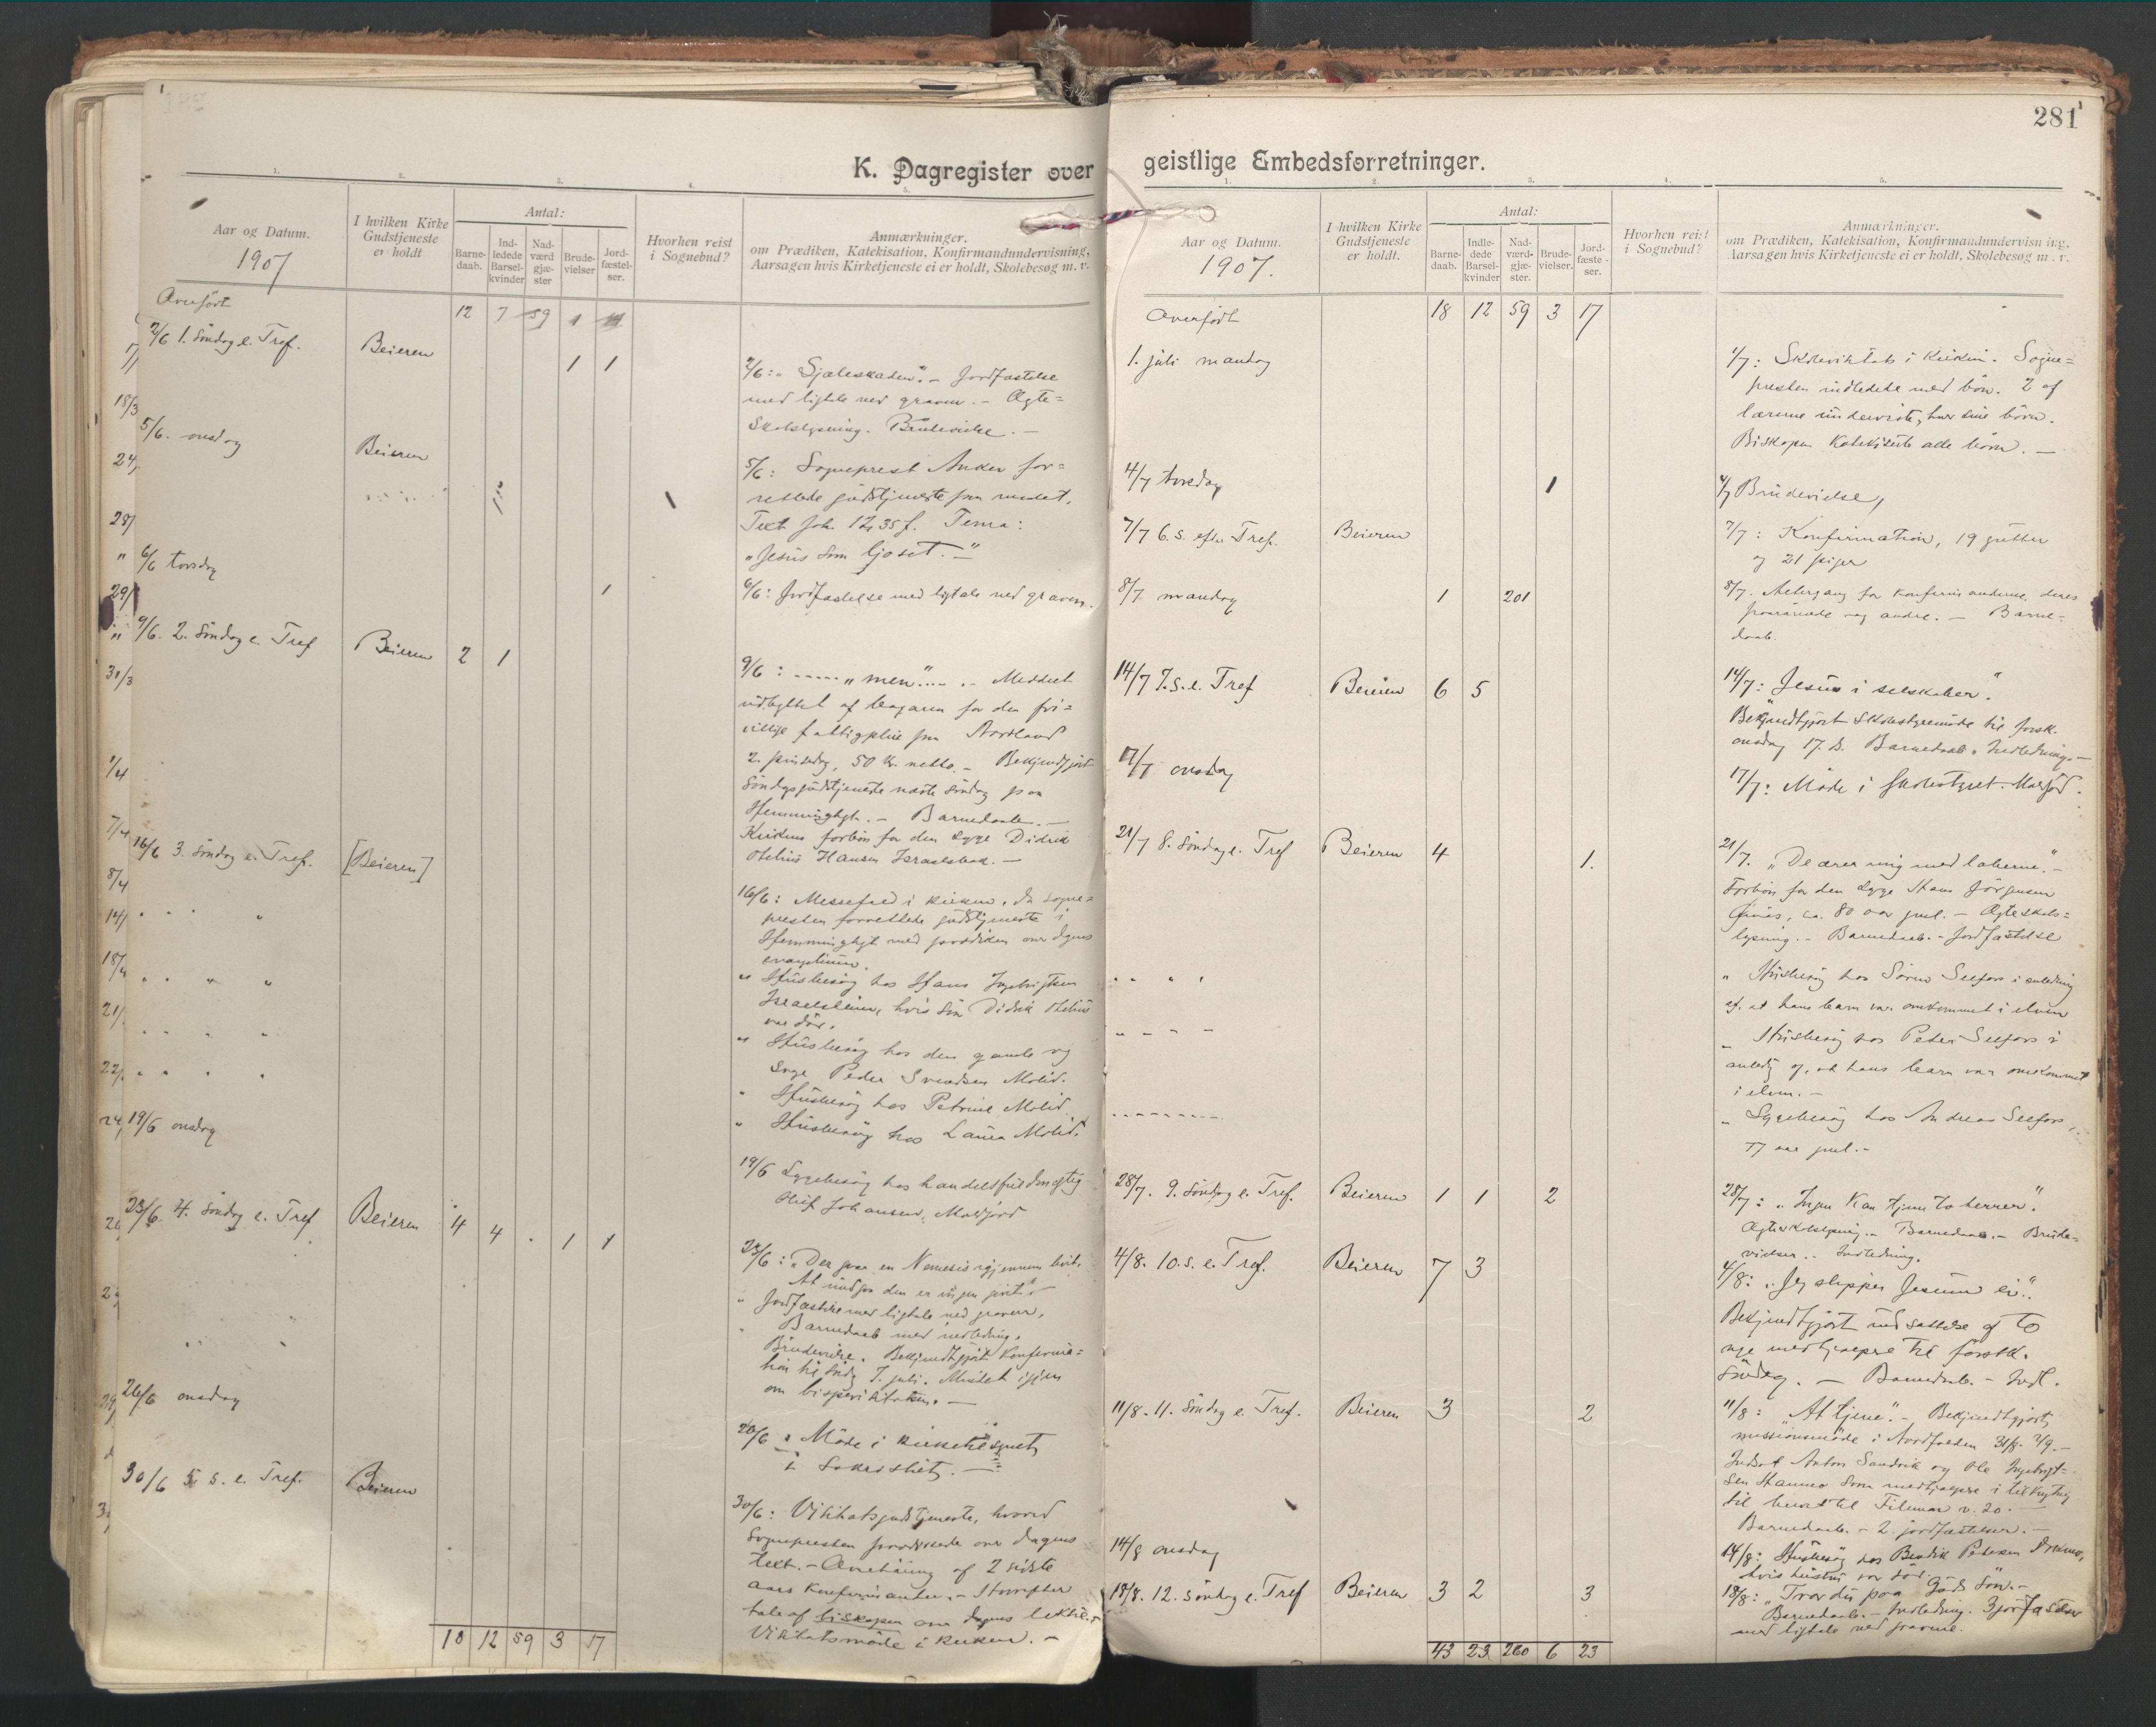 K. Dagregister over
1. 2. 3. 4. 5.
Aar og Datum.
1907
I hvilken Kirke
Gudstjeneste
er holdt
Antal:
Barne-
daab.
Ind-
ledede
Barsel-
kvinder
Nad-
værd
gjæ-
ster
Brude-
vielser
Jord-
fæstel-
ser.
Hvorhen reist
i Sognebud?
Anmærkninger.
om Prædiken, Katekisation, Konfirmandundervisning,
Aarsagen hvis Kirketjeneste ei er holdt, Skolebesøg m. v.
Overført 12 7 59 1 14
2/6 1. Søndag e. Tref. Beieren 1 1
2/6: "Sjæleskaden". - Jordfæstelse
med ligtale ved graven. - Ægte=
skabslysning. Brudevielse. -
5/6. onsdag Beieren
5/6: Sogneprest Anker for=
rettede gudstjeneste paa
Text Joh. 12, 35 f. Tema:
"Jesus som ljoset."
" 6/6 torsdag 1
6/6: Jordfæstelse med ligtale ved graven.
9/6. 2. Søndag e. Tref Beieren 2 1
9/6: ..... "men" .... - Meddelt
udbyttet af bazaren for den fri=
villige fattigpleie fra Nordland
2. pinsedag, 50 Kr. netto. - Bekjendtgjort
Søndagsgudstjeneste næste Søndag paa
- Barnedaab. -
Kirkens forbøn for den syge Didrik
Hansen -
16/6 3. Søndag e. Tref. [Beieren]
16/6: Messefald i kirken, da sogne=
presten forrettede gudstjeneste i
med prædiken over dagens
evangelium.
" Husbesøg hos Hans Ingebrigtsen
hvis søn Didrik
var død.
" Husbesøg hos den gamle og
syge Peder Svendsen Molid.
" Husbesøg hos Petrine Molid
" Husbesøg hos Laura Molid.
19/6 onsdag
19/6 Sygebesøg hos handelsfuldmægtig
Johansen, Moldjord
23/6. 4. Søndag e. Tref Beieren 4 4 1 1
23/6: "Der gaar en Nemesis igjennem livet.
At undgaa den er ingen givet"
" Jordfæstelse med ligtale ved graven.
" Barnedaab med indledning.
Brudevielse. Bekjendtgjort Konfirma=
tion til Søndag 7. juli. Mindet igjen
om bispevisitatsen. -
26/6 onsdag
26/6 Møde i
i Sakristiet. -
30/6 5 s. e. Tref. Beieren
30/6: Visitatsgudstjeneste, hvorved
Sognepresten prædikede over dagens
text. - Overhøring af 2 sidste
aars Konfirmanter. - Herefter
tale af biskopen over dagens lektie. -
Visitatsmøde i kirken. -
18 12 59 3 17
281
geistlige Embedsforretninger.
1. 2. 3. 4. 5.
Aar og Datum.
1907.
I hvilken Kirke
Gudstjeneste
er holdt.
Antal:
Barne-
daab.
Indle-
dede
Barsel-
kvinder
Nad-
værd-
gjæ-
ster.
Brude-
vielser.
Jord-
fæste-
ser.
Hvorhen reist
i Sognebud?
Anmærkninger.
om Prædiken, Katekisation, Konfirmandundervisning,
Aarsagen hvis Kirketjeneste ei er holdt, Skolebesøg m. v.
Overført 18 12 59 3 17
1. juli mandag
1/7: Skolevisitats i Kirken. Sogne=
presten indledede med bøn. 2 af
lærerne underviste, hver sine børn.
Biskopen Katekiserte alle børn. -
4/7 torsdag 1
4/7 Brudevielse,
7/7 6. s. efter Tref. Beieren
7/7: Konfirmation, 19 gutter
og 21 piger
8/7 mandag 1 201
8/7. Altergang for konfirmanderne, deres
paarørende og andre. - Barne=
daab.
14/7 7. s. e. Tref Beieren 6 5
14/7: "Jesus i selskaber".
Bekjendtgjort Skolestyremøde til førstk.
onsdag 17. ds. Barnedaab. Indledning. -
17/7 onsdag
17/7: Møde i Skolestyret. Moldjord.
21/7 8. Søndag e. Tref Beieren 4 1.
21/7. "De ærer mig med læberne". -
Forbøn for den syge Hans Jørgensen
ca. 80 aar gml. - Ægteskabs=
lysning. - Barnedaab. - Jordfæstelse
" Husbesøg hos Søren Selfors i anledning
af, at hans barn var omkommet i elven
" Husbesøg hos Peder Selfors i
anledg af, at hans barn var omkommet
i elven. -
" Sygebesøg hos Andreas Selfors,
77 aar gml. -
28/7. 9. Søndag e. Tref. Beieren 1 1 2
28/7: "Ingen kan tjene to herrer".
Ægteskabslysning. - Barnedaab. - Brude=
vielser. - Indledning.
4/8. 10. s. e. Tref. Beieren 7 3
4/8: "Jeg slipper Jesum ei".
Bekjendtgjort indsættelse af to
nye medhjælpere til førstk.
Søndag. - Barnedaab. - Indl.
11/8. 11. Søndag e. Tref. Beieren 3 2
11/8: "At tjene". - Bekjendtgjort
missionsmøde i Nordfolden 31/8. 2/9. -
Indsat Anton Sandvik og Ole Ingebrigt=
sen som medhjælpere i tilknytning
til brevet til Filemon v. 20. -
Barnedaab. - 2 jordfæstelser. -
14/8 onsdag
14/8: Husbesøg hos Bendik Petersen
hvis hustru var død.
18/8. 12. Søndag e. Tref Beieren 3 2 3
18/8: "Tror du paa Guds Søn. -
Barnedaab. - Indledning. 3 jordfæstelser
med ligtale ved gravene.
43 23 260 6 23